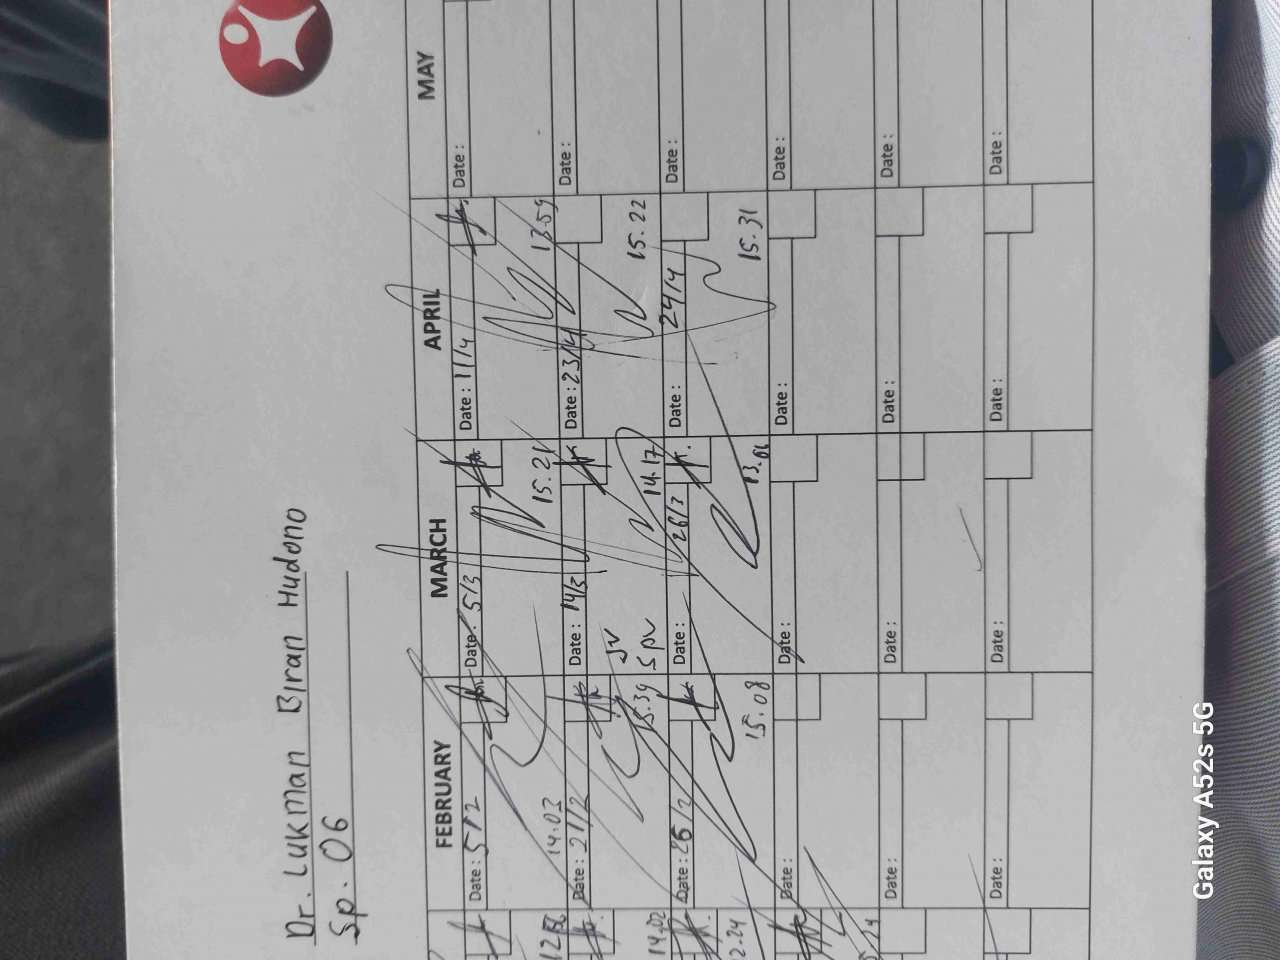 Dr. Lukman Biran Hudono
Sp. OG
FEBRUARY MARCH APRIL MAY
Date : 5/2 Date : 5/3 Date : 11/4 Date :
14.03 15.21 13.59
Date : 21/2 Date : 14/3 Date : 23/4 Date :
15.39 JV SPV 14.17 15.22
Date : 26/2 Date : 26/3 Date : 24/4 Date :
15.08 13.06 15.31
Date : Date : Date : Date :
Date : Date : Date : Date :
Date : Date : Date : Date :
14.02
12.24
Galaxy A52s 5G